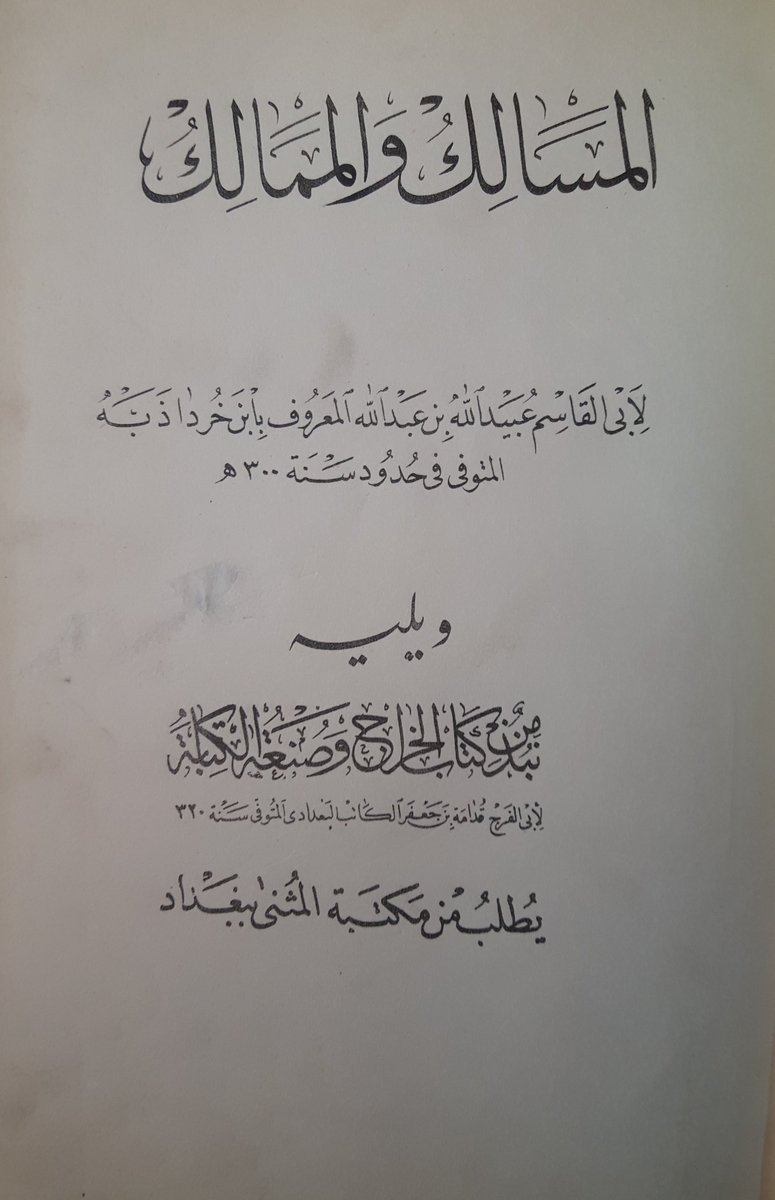 المسالك والممالك
لأبي القاسم عبيد الله بن عبد الله المعروف بابن خرداذبه
المتوفى في حدود سنة ٣٠٠ هـ
ويليه
نبذ من كتاب الخراج وصنعة الكتابة
لأبي الفرج قدامة بن جعفر الكاتب البغدادي المتوفى سنة ٣٢٠
يطلب من مكتبة المثنى ببغداد